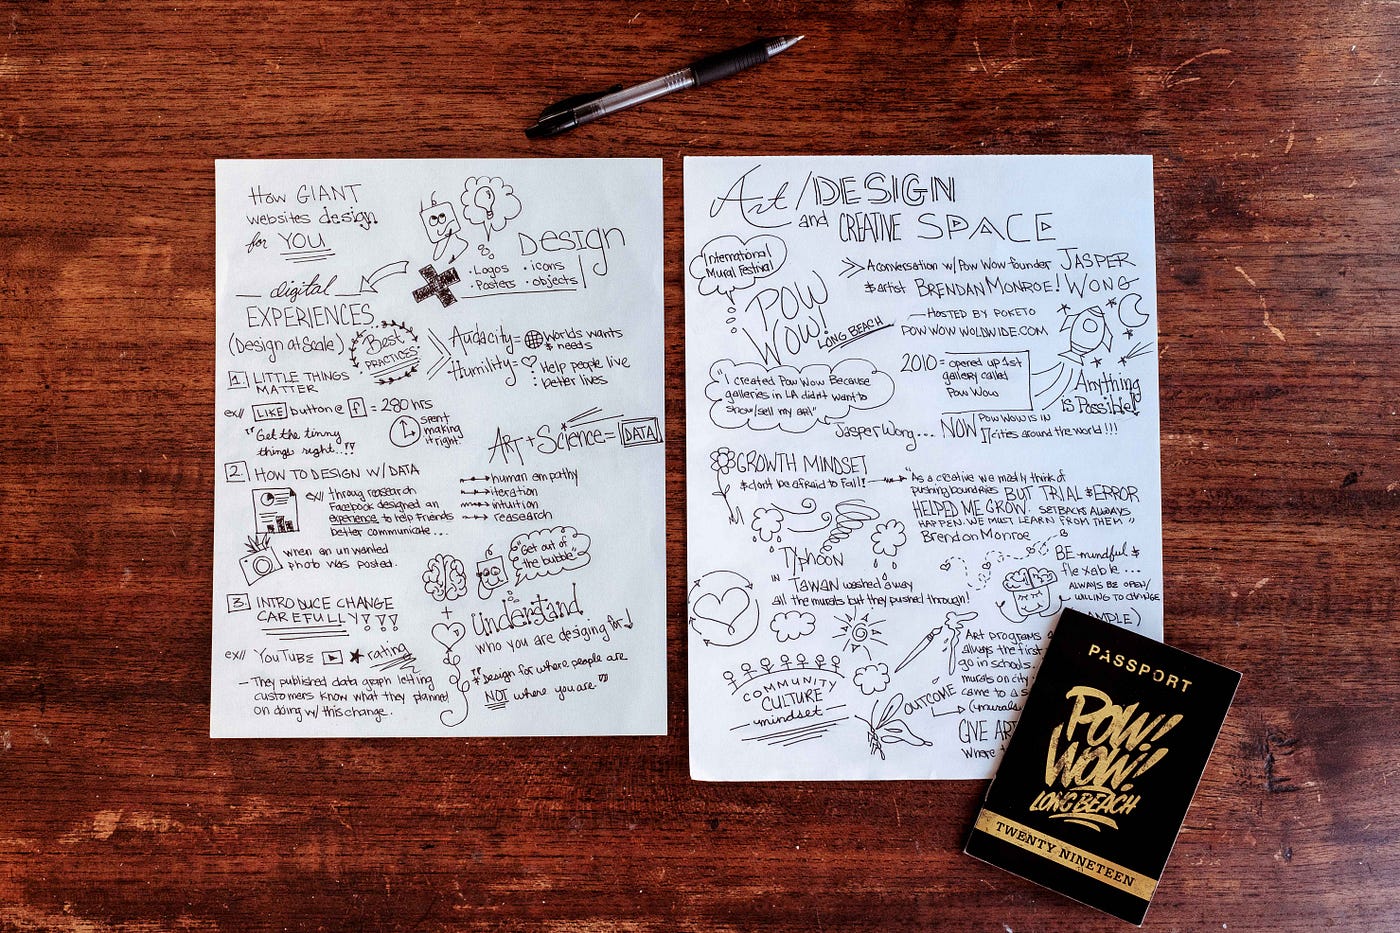 How GIANT
websites design
for YOU
DESIGN
• Logos • icons
• Posters • objects
digital
EXPERIENCES
(Design at Scale)
Best
PRACTICES
Audacity = Worlds wants
& needs
Humility = Help people live
better lives
1. LITTLE THINGS
MATTER
ex// LIKE button @ f = 280 hrs
spent
making
it right
"Get the tinny
things right...!!"
ART + Science = DATA
2. HOW TO DESIGN W/ DATA
ex// throug research
Facebook designed an
experience to help friends
better communicate...
when an unwanted
photo was posted.
human empathy
iteration
intuition
reasearch
"Get out of
the bubble"
3. INTRODUCE CHANGE
CAREFULLY!!!
ex// YOUTUBE rating
– They published data graph letting
customers know what they planned
on doing w/ this change.
+
Understand
who you are desiging for!
"Design for where people are
NOT where you are."
Art/DESIGN
and CREATIVE SPACE
International
Mural Festival
A conversation w/ Pow Wow founder JASPER
& artist BRENDAN MONROE! WONG
POW
WOW!
LONG BEACH
— HOSTED BY POKETO
POW WOW WOLDWIDE.COM
2010 = opened up 1st
gallery called
Pow Wow
Anything
is Possible!
"I created Pow Wow Because
galleries in LA didn't want to
show/sell my art"
Jasper Wong... NOW Pow Wow is in
17 cities around the world!!!
GROWTH MINDSET
& don't be afraid to Fail!
"As a creative we mostly think of
pushing boundries BUT TRIAL & ERROR
HELPED ME GROW. SETBACKS ALWAYS
HAPPEN. WE MUST LEARN FROM THEM"
Brendon Monroe
Typhoon
IN TAWAN washed away
all the murals but they pushed through!
BE mindful &
flexable...
ALWAYS BE OPEN/
WILLING TO CHANGE
MPLE)
COMMUNITY
CULTURE
mindset
OUTCOME
Art programs
always the first
go in schools.
murals on city
came to a s
(murals
GIVE ART
where t
PASSPORT
POW!
WOW!
LONG BEACH
TWENTY NINETEEN